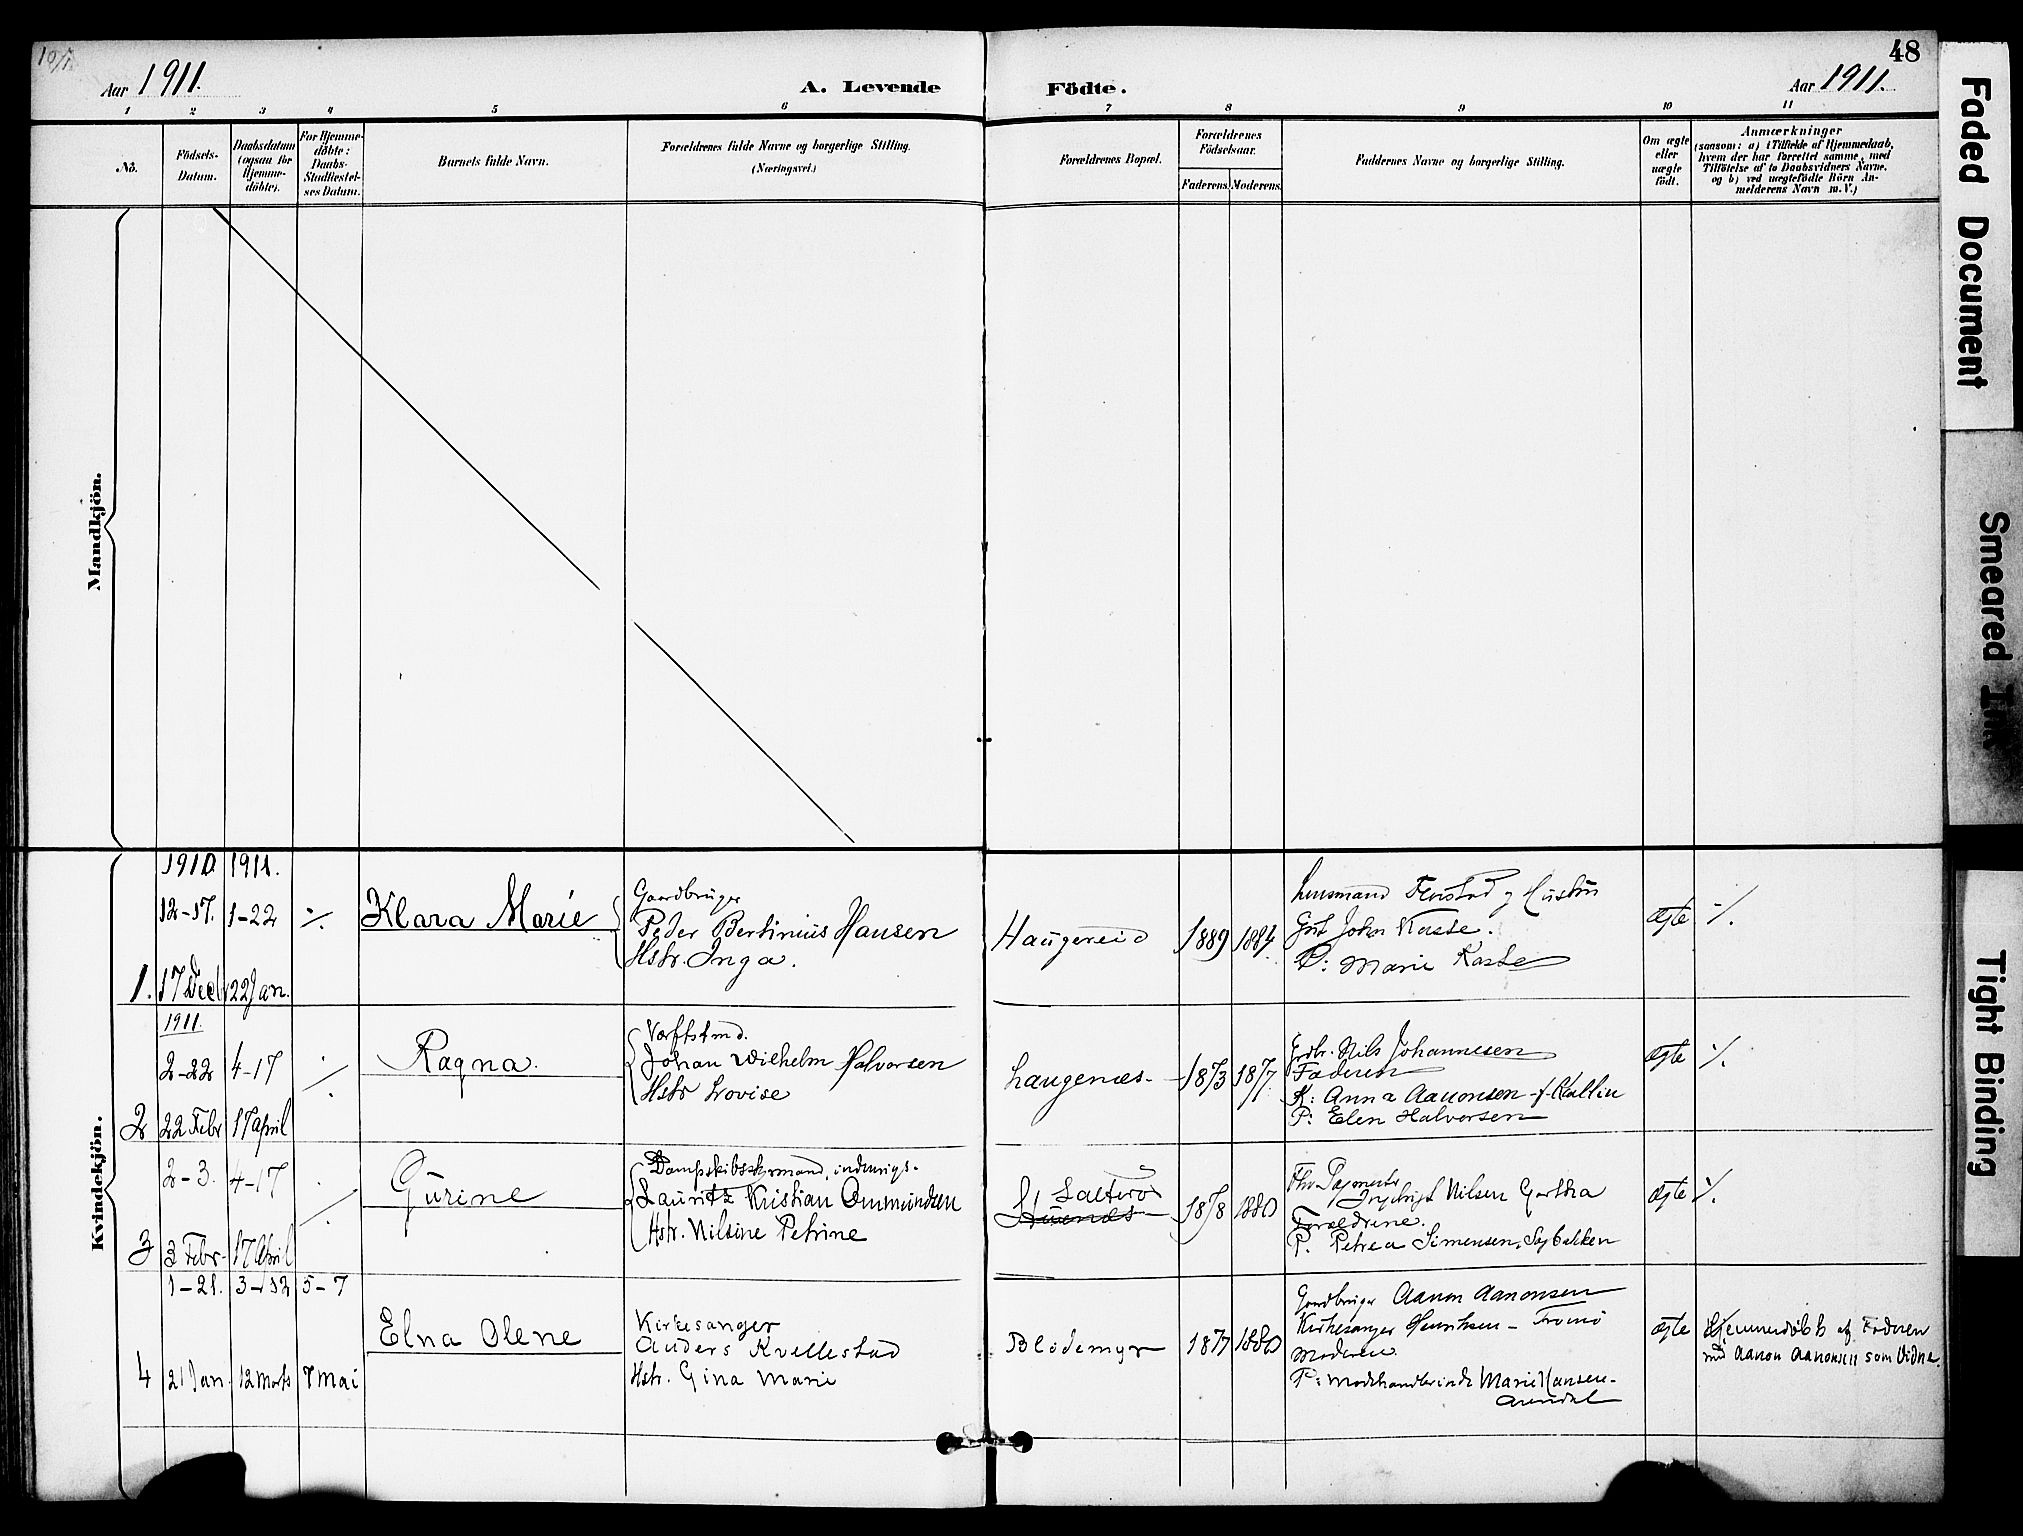 48
Aar 1911.
A. Levende Födte.
Aar 1911.
1 2 3 4 5 6 7 8 9 10 11
No.
Födsels-
Datum.
Daabsdatum
(ogsaa for
Hjemme-
döbte).
For Hjemme-
döbte:
Daabs-
Stadfæstel-
ses Datum.
Barnets fulde Navn.
Forældrenes fulde Navne og borgerlige Stilling.
(Næringsvei.)
Forældrenes Bopæl.
Forældrenes
Födselsaar.
Faderens. Moderens.
Faddernes Navne og borgerlige Stilling.
Om ægte
eller
uægte
födt.
Anmærkninger
(saasom: a) i Tilfælde af Hjemmedaab,
hvem der har forrettet samme, med
Tilföielse af to Daabsvidners Navne.
og b) ved uægtefödte Börn An-
melderens Navn m. V.)
Mandkjön.
Kvindekjön.
1910. 1911.
12-17. 1-22 ./.
1. 17 Decb 22 Jan.
Klara Marie
Gaardbruger
Peder Bertinius Hansen
Hstr. Inga.
Haugereid
1889 1884.
Lensmand Fenstad og Hustru
Gust John Kaste.
P: Marie Kaste
ægte ./.
1911.
2-22 4-17 ./.
2 22 Febr 17 April
Ragna.
Værftstmd.
Johan Wilhelm Halvorsen
Hstr Lovise
Laugenæs.
1873 1877.
Grdbr. Nils Johannesen
Faderen
K: Anna Aanonsen
P: Elen Halvorsen
ægte ./.
2-3. 4-17 ./.
3 3 Febr. 17 April
Gurine
Dampskibsstyrmand, indenrigs-
Lauritz Kristian Omundsen
Hstr. Nilsine Petrine
Salterö
1878 1880
Ingebrigt Nilsen Gartha
Forældrene.
P. Petrea Simensen, Sagbakken
ægte ./.
1-21. 3-12 5-7
4 21 Jan. 12 Marts 7 Mai
Elna Olene
Kirkesanger
Anders Kvellestad
Hstr. Gina Marie
Blödemyr
1877 1880
Gaardbruger Aanon Aanonsen
Kirkesanger Henriksen - Tromö
Moderen.
P: Modehandlerinde Marie Hansen-
Arendal
ægte
Hjemmedöbt af Faderen
med Aanon Aanonsen som Vidne.
Faded Document
Smeared Ink
Tight Binding